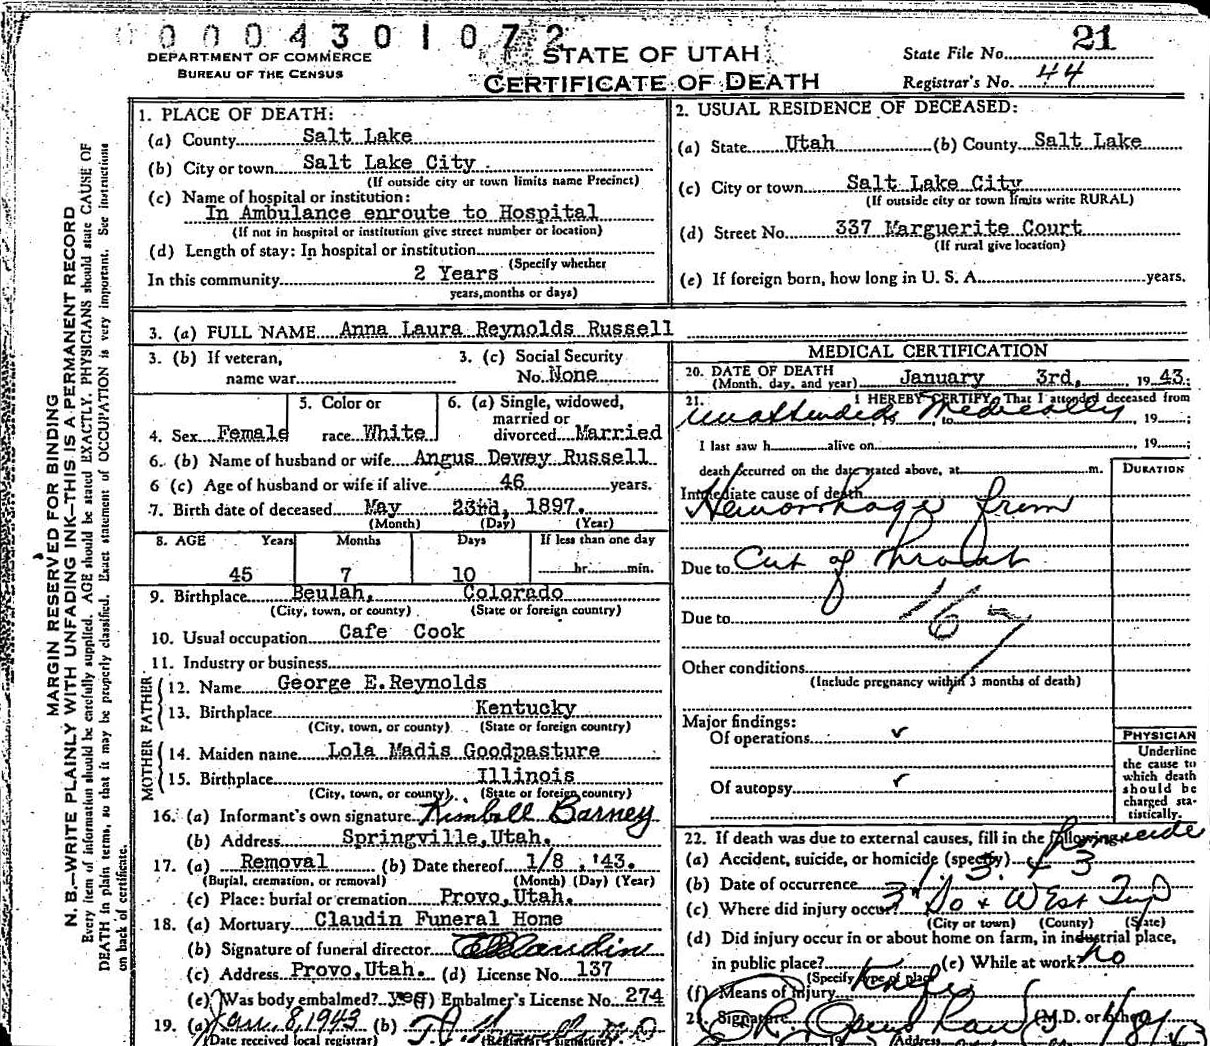 0004301072
DEPARTMENT OF COMMERCE
BUREAU OF THE CENSUS
STATE OF UTAH
CERTIFICATE OF DEATH
State File No. 21
Registrar's No. 44
MARGIN RESERVED FOR BINDING
N. B.—WRITE PLAINLY WITH UNFADING INK—THIS IS A PERMANENT RECORD
Every item of information should be carefully supplied. AGE should be stated EXACTLY. PHYSICIANS should state CAUSE OF
DEATH in plain terms, so that it may be properly classified. Exact statement of OCCUPATION is very important. See instructions
on back of certificate.
1. PLACE OF DEATH:
(a) County Salt Lake
(b) City or town Salt Lake City
(If outside city or town limits name Precinct)
(c) Name of hospital or institution:
In Ambulance enroute to Hospital
(If not in hospital or institution give street number or location)
(d) Length of stay: In hospital or institution
(Specify whether
In this community 2 Years
years, months or days)
2. USUAL RESIDENCE OF DECEASED:
(a) State Utah (b) County Salt Lake
(c) City or town Salt Lake City
(If outside city or town limits write RURAL)
(d) Street No. 337 Marguerite Court
(If rural give location)
(e) If foreign born, how long in U. S. A. years.
3. (a) FULL NAME Anna Laura Reynolds Russell
3. (b) If veteran,
name war
3. (c) Social Security
No. None
4. Sex Female
5. Color or
race White
6. (a) Single, widowed,
married or
divorced Married
6. (b) Name of husband or wife Angus Dewey Russell
6 (c) Age of husband or wife if alive 46 years.
7. Birth date of deceased May 23rd, 1897.
(Month) (Day) (Year)
8. AGE Years Months Days If less than one day
45 7 10 hr. min.
9. Birthplace Beulah, Colorado
(City, town, or county) (State or foreign country)
10. Usual occupation Cafe Cook
11. Industry or business
FATHER
12. Name George E. Reynolds
13. Birthplace Kentucky
(City, town, or county) (State or foreign country)
MOTHER
14. Maiden name Lola Madis Goodpasture
15. Birthplace Illinois
(City, town, or county) (State or foreign country)
16. (a) Informant's own signature Kimball Barney
(b) Address Springville, Utah.
17. (a) Removal (b) Date thereof 1/8 '43.
(Burial, cremation, or removal) (Month) (Day) (Year)
(c) Place: burial or cremation Provo, Utah.
18. (a) Mortuary Claudin Funeral Home
(b) Signature of funeral director
(c) Address Provo, Utah. (d) License No. 137
(e) Was body embalmed? yes (f) Embalmer's License No. 274
19. (a) Jan. 8, 1943 (b)
(Date received local registrar) (Registrar's signature)
MEDICAL CERTIFICATION
20. DATE OF DEATH
(Month, day, and year) January 3rd, 1943;
21. I HEREBY CERTIFY, That I attended deceased from
unattended Medically 19 , to , 19 ;
I last saw h alive on , 19 ;
death occurred on the date stated above, at m.
DURATION
Immediate cause of death
Hemorrhage from
Due to Cut of Throat
Due to 167
Other conditions
(Include pregnancy within 3 months of death)
Major findings:
Of operations ✓
Of autopsy ✓
PHYSICIAN
Underline
the cause to
which death
should be
charged sta-
tistically.
22. If death was due to external causes, fill in the following:
(a) Accident, suicide, or homicide (specify) homicide
(b) Date of occurrence 1. 3. 43
(c) Where did injury occur? 3rd So & West Tmpl
(City or town) (County) (State)
(d) Did injury occur in or about home on farm, in industrial place,
in public place? (e) While at work? no
(Specify type of place)
(f) Means of injury Knife
23. Signature (M.D. or other)
Address